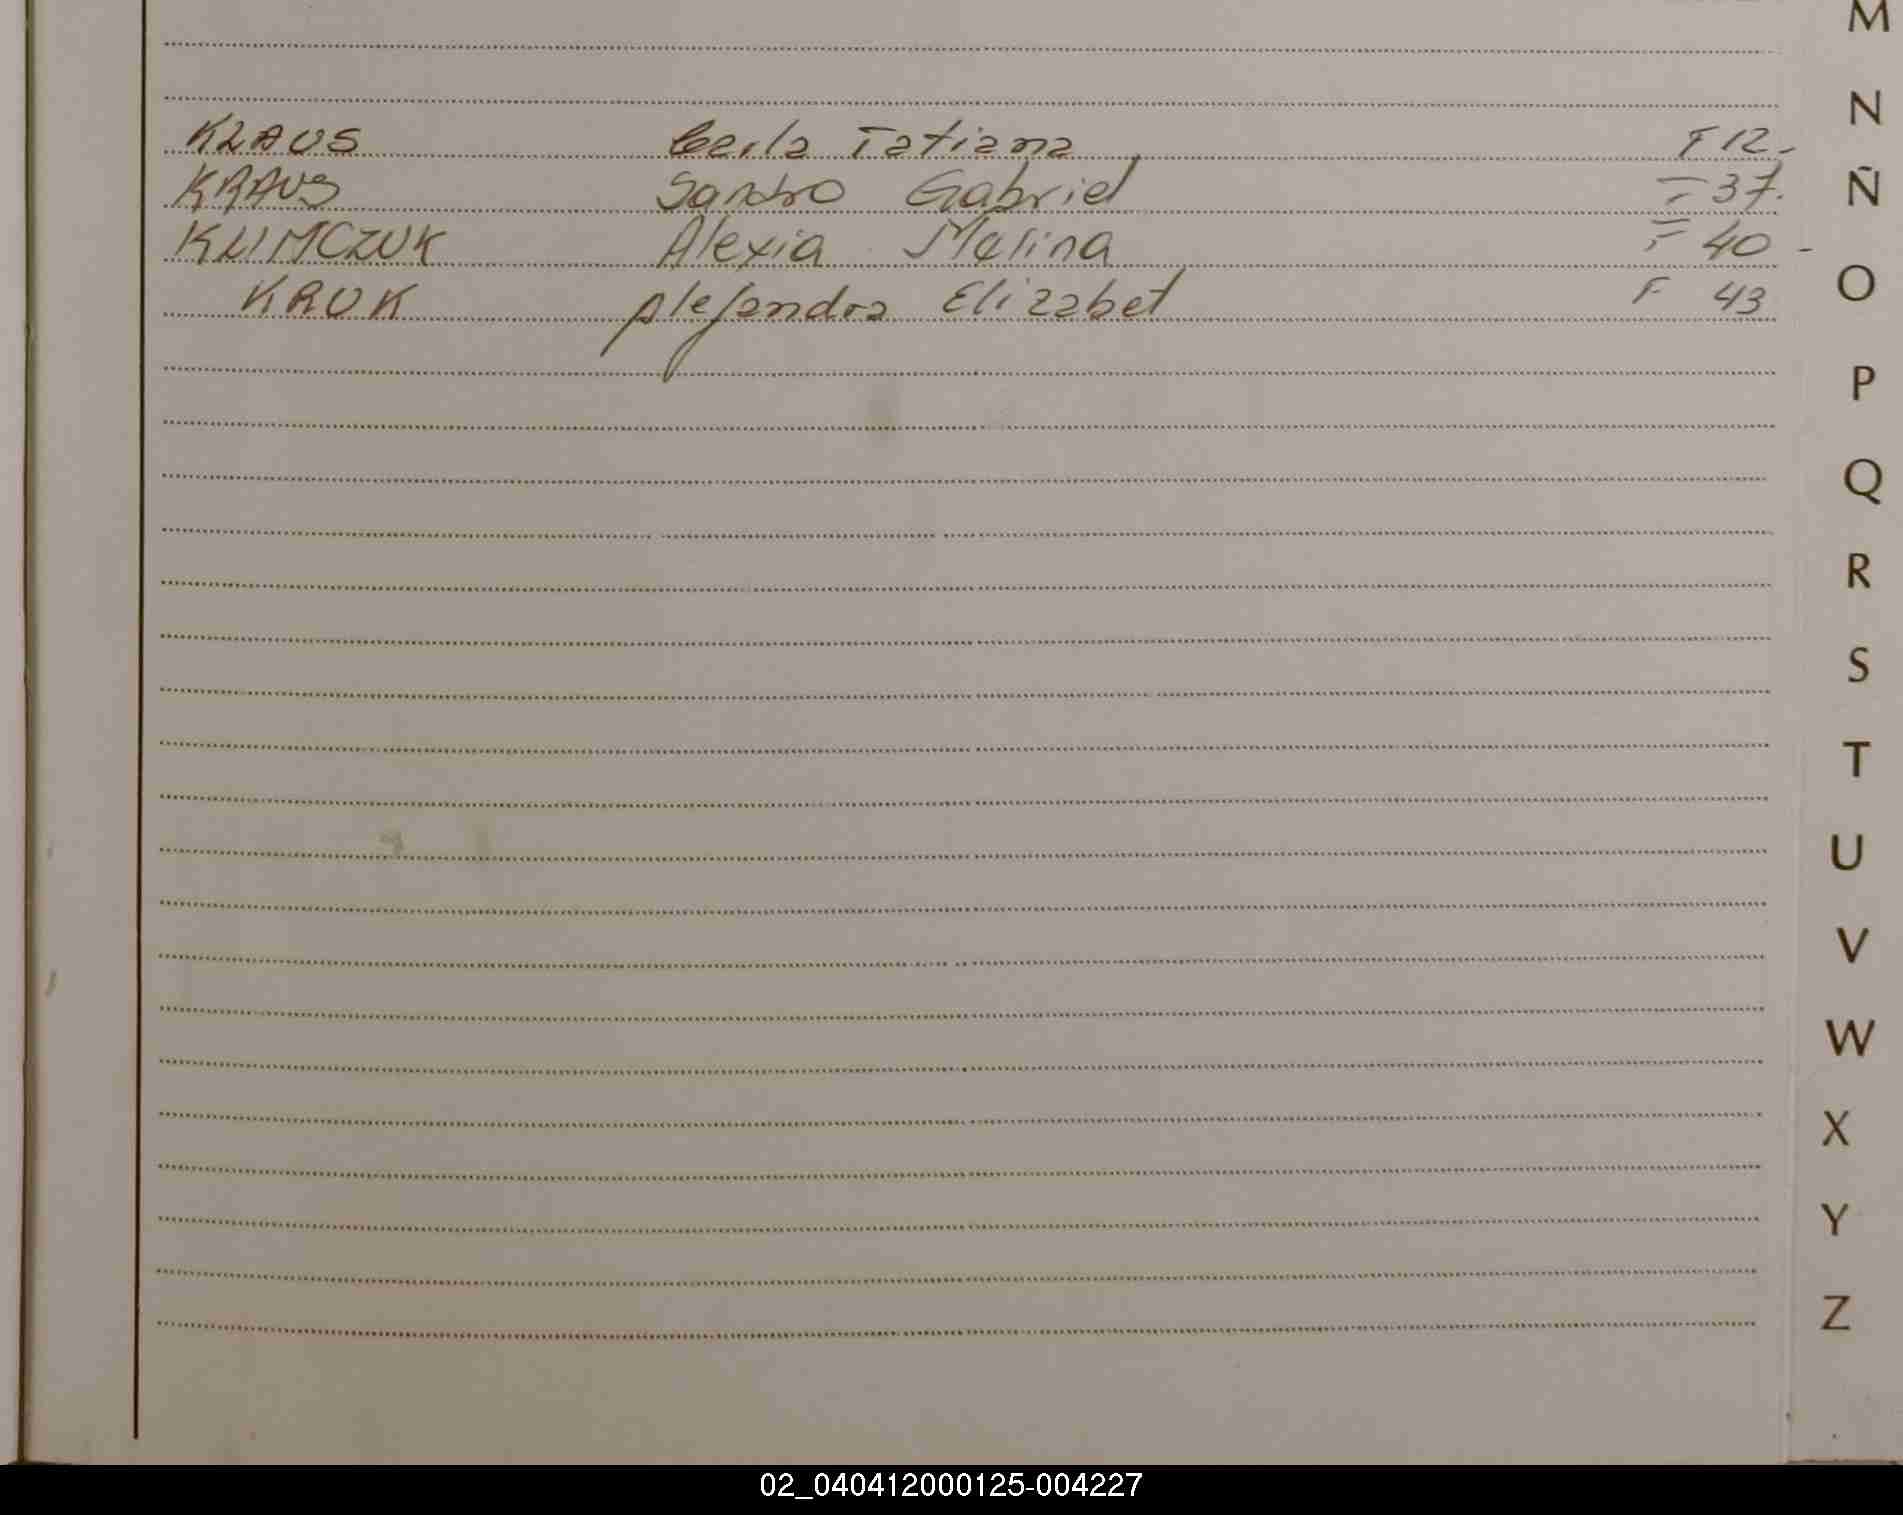 M
N
KLAUS Carla Tatiana F 12-
Ñ
KRAUS Sandro Gabriel F 37.
KLIMCZUK Alexia Melina F 40 -
O
KRUK Alejandra Elizabet F 43
P
Q
R
S
T
U
V
W
X
Y
Z
02_040412000125-004227